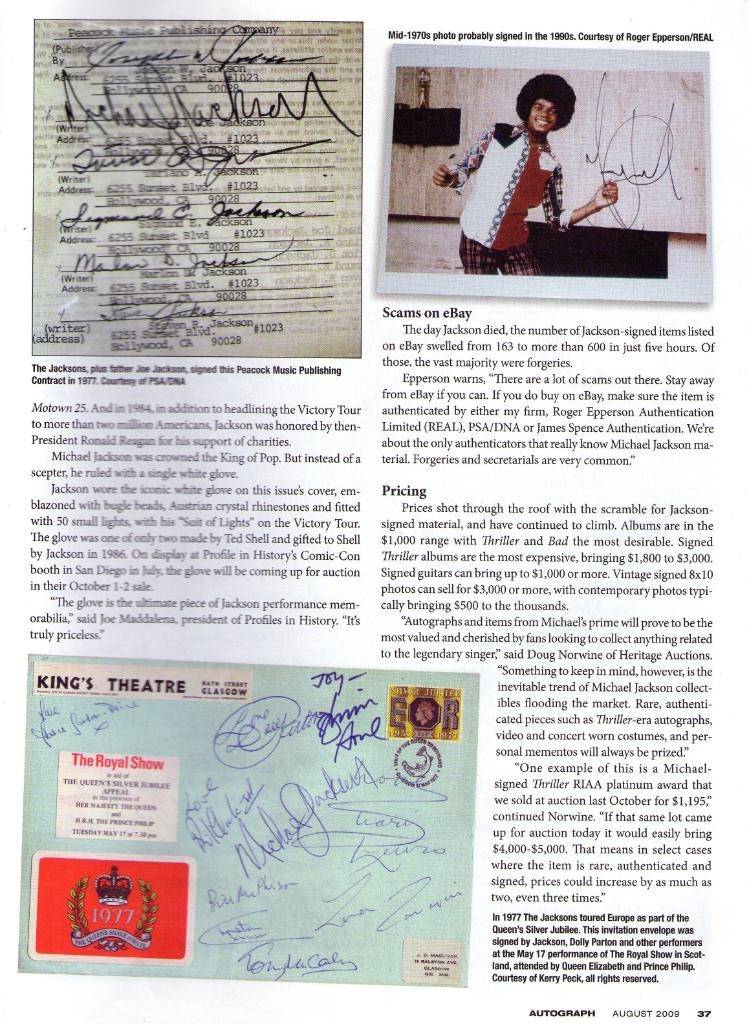 Peacock Music Publishing Company
(Publisher)
By
Address: 6255 Sunset Blvd. #1023
Hollywood, CA 90028
Michael Jackson
(Writer) Jackson
Address: 6255 Sunset Blvd. #1023
Hollywood, CA 90028
(Writer) Jackson
Address: 6255 Sunset Blvd. #1023
Hollywood, CA 90028
Sigmund E. Jackson
(Writer) Jackson
Address: 6255 Sunset Blvd #1023
Hollywood, CA 90028
Marlon D. Jackson
(Writer) Marlon D. Jackson
Address: 6255 Sunset Blvd. #1023
Hollywood, CA 90028
(writer) Steven R. Jackson
(address) 6255 Sunset Blvd. #1023
Hollywood, CA 90028
The Jacksons, plus father Joe Jackson, signed this Peacock Music Publishing
Contract in 1977. Courtesy of PSA/DNA
Motown 25. And in 1984, in addition to headlining the Victory Tour
to more than two million Americans, Jackson was honored by then-
President Ronald Reagan for his support of charities.
Michael Jackson was crowned the King of Pop. But instead of a
scepter, he ruled with a single white glove.
Jackson wore the iconic white glove on this issue's cover, em-
blazoned with bugle beads, Austrian crystal rhinestones and fitted
with 50 small lights, with his "Suit of Lights" on the Victory Tour.
The glove was one of only two made by Ted Shell and gifted to Shell
by Jackson in 1986. On display at Profile in History's Comic-Con
booth in San Diego in July, the glove will be coming up for auction
in their October 1-2 sale.
"The glove is the ultimate piece of Jackson performance mem-
orabilia," said Joe Maddalena, president of Profiles in History. "It's
truly priceless."
Mid-1970s photo probably signed in the 1990s. Courtesy of Roger Epperson/REAL
Scams on eBay
The day Jackson died, the number of Jackson-signed items listed
on eBay swelled from 163 to more than 600 in just five hours. Of
those, the vast majority were forgeries.
Epperson warns, "There are a lot of scams out there. Stay away
from eBay if you can. If you do buy on eBay, make sure the item is
authenticated by either my firm, Roger Epperson Authentication
Limited (REAL), PSA/DNA or James Spence Authentication. We're
about the only authenticators that really know Michael Jackson ma-
terial. Forgeries and secretarials are very common."
Pricing
Prices shot through the roof with the scramble for Jackson-
signed material, and have continued to climb. Albums are in the
$1,000 range with Thriller and Bad the most desirable. Signed
Thriller albums are the most expensive, bringing $1,800 to $3,000.
Signed guitars can bring up to $1,000 or more. Vintage signed 8x10
photos can sell for $3,000 or more, with contemporary photos typi-
cally bringing $500 to the thousands.
"Autographs and items from Michael's prime will prove to be the
most valued and cherished by fans looking to collect anything related
to the legendary singer," said Doug Norwine of Heritage Auctions.
"Something to keep in mind, however, is the
inevitable trend of Michael Jackson collect-
ibles flooding the market. Rare, authenti-
cated pieces such as Thriller-era autographs,
video and concert worn costumes, and per-
sonal mementos will always be prized."
"One example of this is a Michael-
signed Thriller RIAA platinum award that
we sold at auction last October for $1,195,"
continued Norwine. "If that same lot came
up for auction today it would easily bring
$4,000-$5,000. That means in select cases
where the item is rare, authenticated and
signed, prices could increase by as much as
two, even three times."
KING'S THEATRE BATH STREET
GLASGOW
Love
Joy-
SILVER JUBILEE
E R
1952 1977
The Royal Show
in aid of
THE QUEEN'S SILVER JUBILEE
APPEAL
in the presence of
HER MAJESTY THE QUEEN
and
H.R.H. THE PRINCE PHILIP
TUESDAY MAY 17 at 7.30 pm
Love
Michael Jackson
1977
THE QUEEN'S SILVER JUBILEE
J. D. MACLIVER
GLASGOW
In 1977 The Jacksons toured Europe as part of the
Queen's Silver Jubilee. This invitation envelope was
signed by Jackson, Dolly Parton and other performers
at the May 17 performance of The Royal Show in Scot-
land, attended by Queen Elizabeth and Prince Philip.
Courtesy of Kerry Peck, all rights reserved.
AUTOGRAPH AUGUST 2009 37